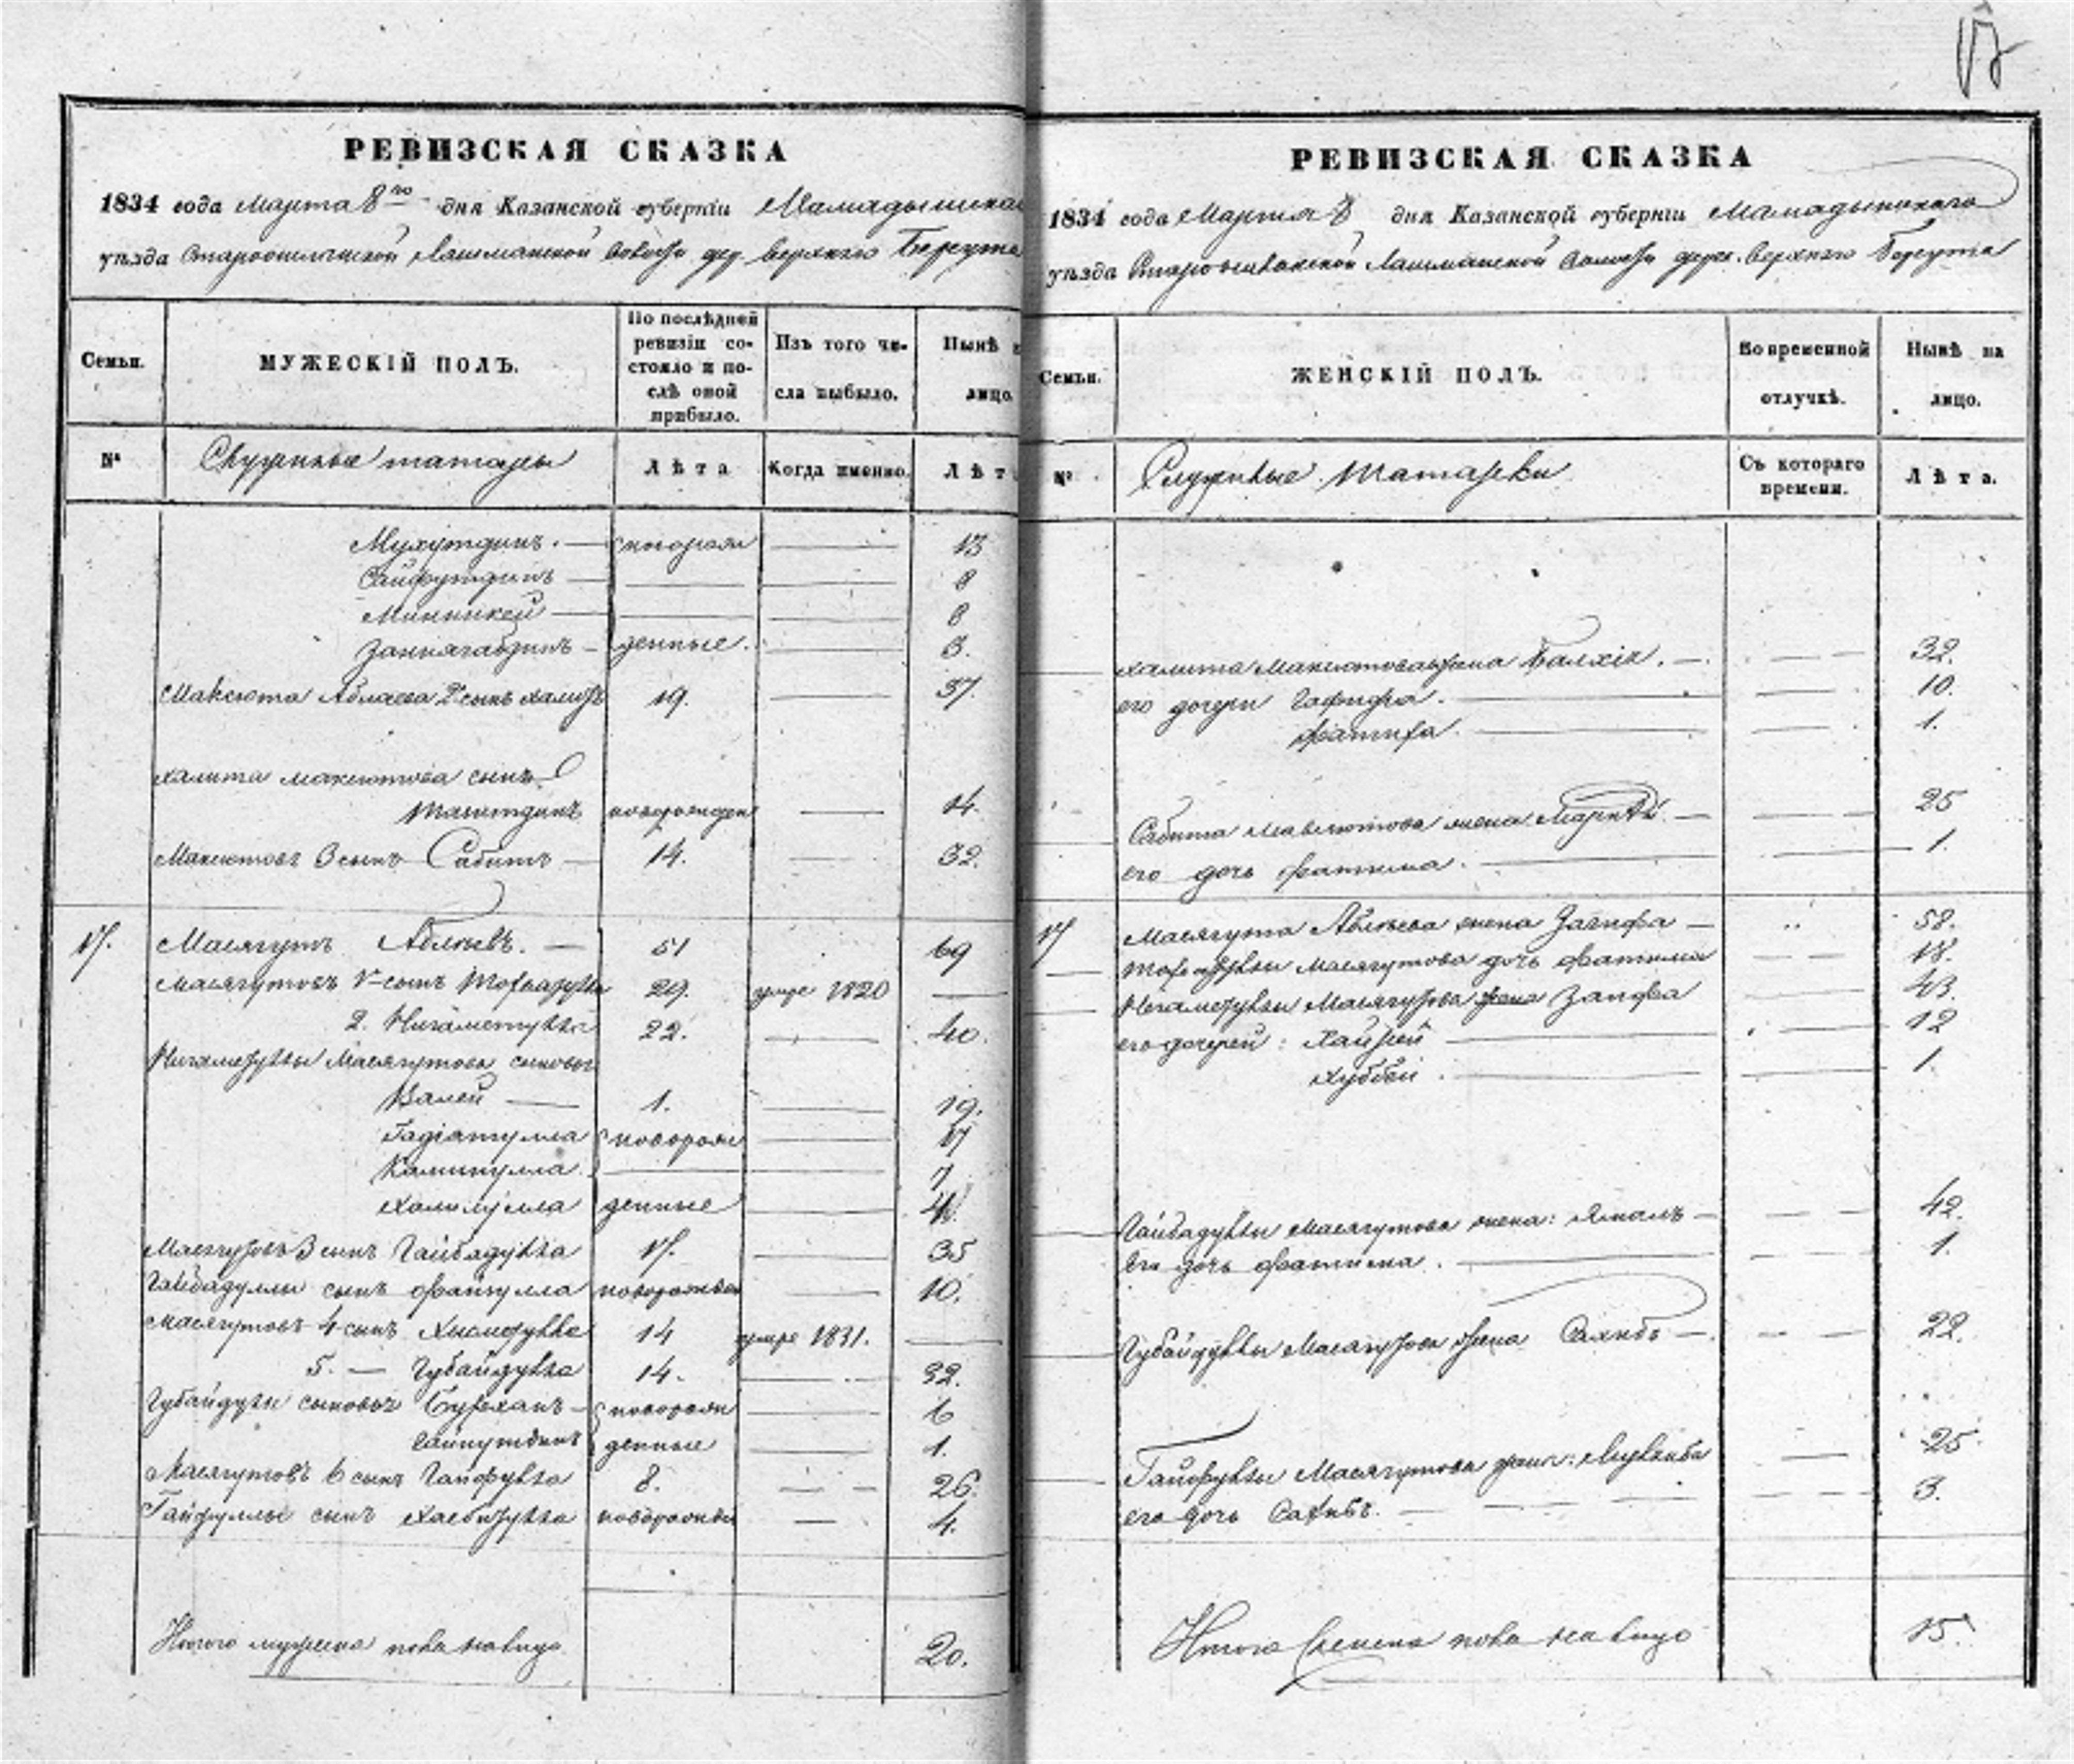 17
РЕВИЗСКАЯ СКАЗКА
1834 года Марта 8го дня Казанской губерніи Мамадышскаго
уѣзда Лашманской Волости дер. Верхняго Берсута
Семьи.
МУЖЕСКІЙ ПОЛЪ.
По послѣдней ревизіи состояло и послѣ оной прибыло.
Изъ того числа выбыло.
Нынѣ
лицо.
№
Служивые татары
Лѣта
Когда именно.
Лѣт
Мухутдинъ. — новорож — 13
Сайфутдинъ — 8
Миникей — 6
Занигабдинъ — денные. — 3.
Максюта Аблаева 2й сынъ Халитъ 19. — 37.
Халита Максютова сынъ
Таштдинъ новорожден — 14.
Максютовъ 3 сынъ Сабитъ — 14. — 32.
17. Масягутъ Аблаевъ. — 51 69
Масягутовъ 1 сынъ 29. умре 1820 —
2. Нигаметулла 22. — 40.
Нигаметуллы Масягутова сыновья
Валей — 1. — 19.
Гадіатулла новорож — 17
Калимулла. — 7
Халилулла денные — 4.
Масягутовъ 3 сынъ Гайбадулла 17. — 35
Гайбадуллы сынъ Файзулла новорожден — 10.
Масягутовъ 4 сынъ 14 умре 1831. —
5. — Губайдулла 14. — 32.
Губайдуллы сыновья Бурханъ — новорож — 6
Гайнутдинъ денные — 1.
Масягутовъ 6 сынъ Гайфулла 8. — 26.
Гайфуллы сынъ Хасбиулла новорожден — 4.
Итого мужеска пола налицо 20.
РЕВИЗСКАЯ СКАЗКА
1834 года Марта 8 дня Казанской губерніи Мамадышскаго
уѣзда Лашманской Волости дерев. Верхняго Берсута
Семьи.
ЖЕНСКІЙ ПОЛЪ.
Во временной отлучкѣ.
Нынѣ на лицо.
№
Служивые Татарки
Съ котораго времени.
Лѣта.
Халита Максютова жена — 32.
его дочери Гафифа. — 10.
Фатифа. — 1.
Сабита Максютова жена — 25
его дочь Фатима. — 1.
17 Масягута Аблаева жена Загифа — 58.
Масягутова дочь Фатима — 18.
Нигаметуллы Масягутова жена Запфа — 43.
его дочерей: — 12
Хуббеи. — 1.
Гайбадуллы Масягутова жена: Ямалъ — 42.
Его дочь Фатима. — 1.
Губайдуллы Масягутова жена Сахибъ — 22.
Гайфуллы Масягутова жена: — 25
его дочь Сахибъ. — 3.
Итого Женска пола на лицо 15.